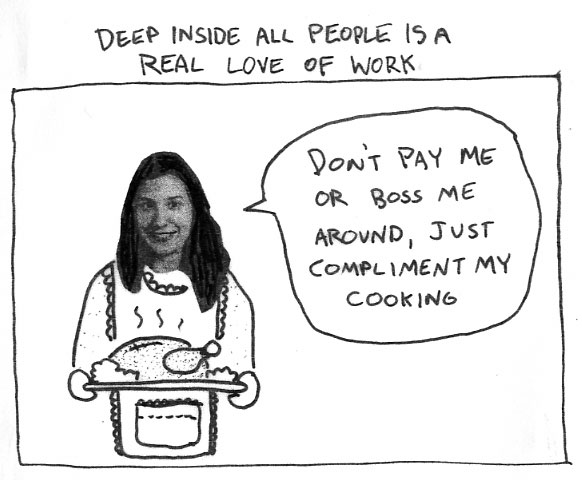 DEEP INSIDE ALL PEOPLE IS A
REAL LOVE OF WORK
DON'T PAY ME
OR BOSS ME
AROUND, JUST
COMPLIMENT MY
COOKING